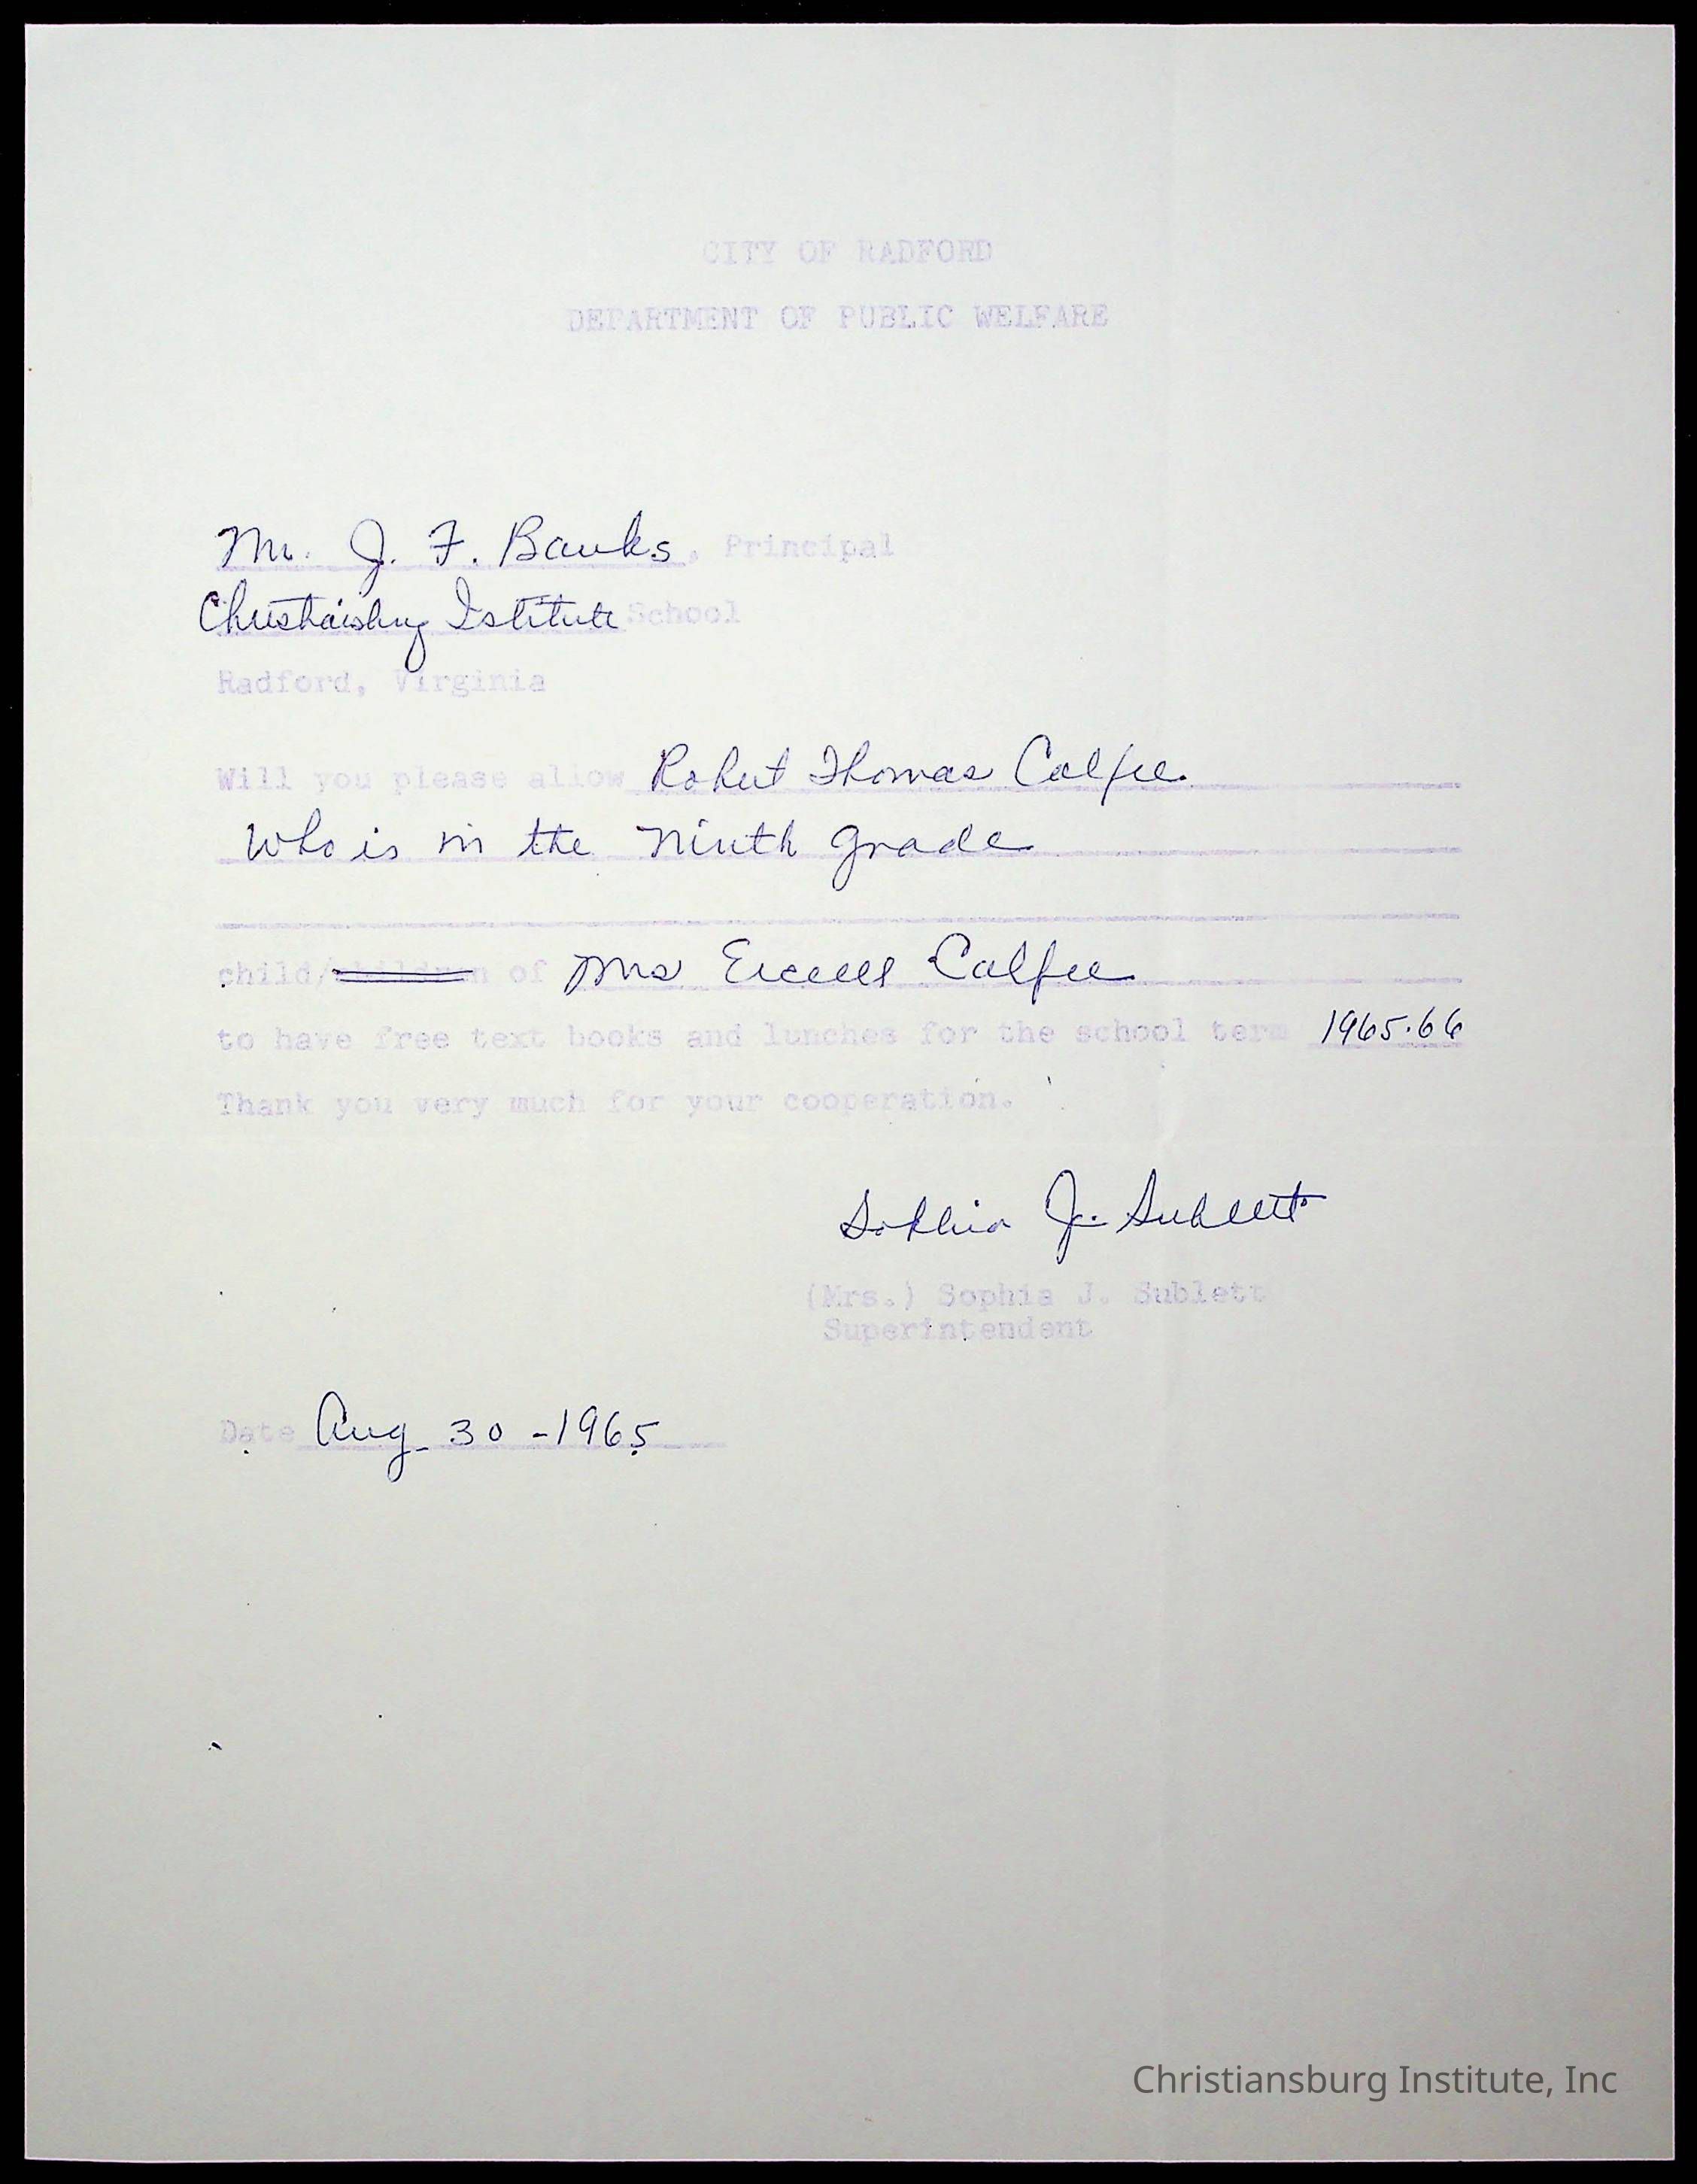 CITY OF RADFORD
DEPARTMENT OF PUBLIC WELFARE
Mr. J. F. Banks, Principal
Christiansburg Istitute School
Radford, Virginia
Will you please allow Robert Thomas Calfee.
Who is in the Ninth grade
child/children of Mrs Calfee
to have free text books and lunches for the school term 1965.66
Thank you very much for your cooperation.
Sophia J. Sublett
(Mrs.) Sophia J. Sublett
Superintendent
Date Aug 30 -1965
Christiansburg Institute, Inc